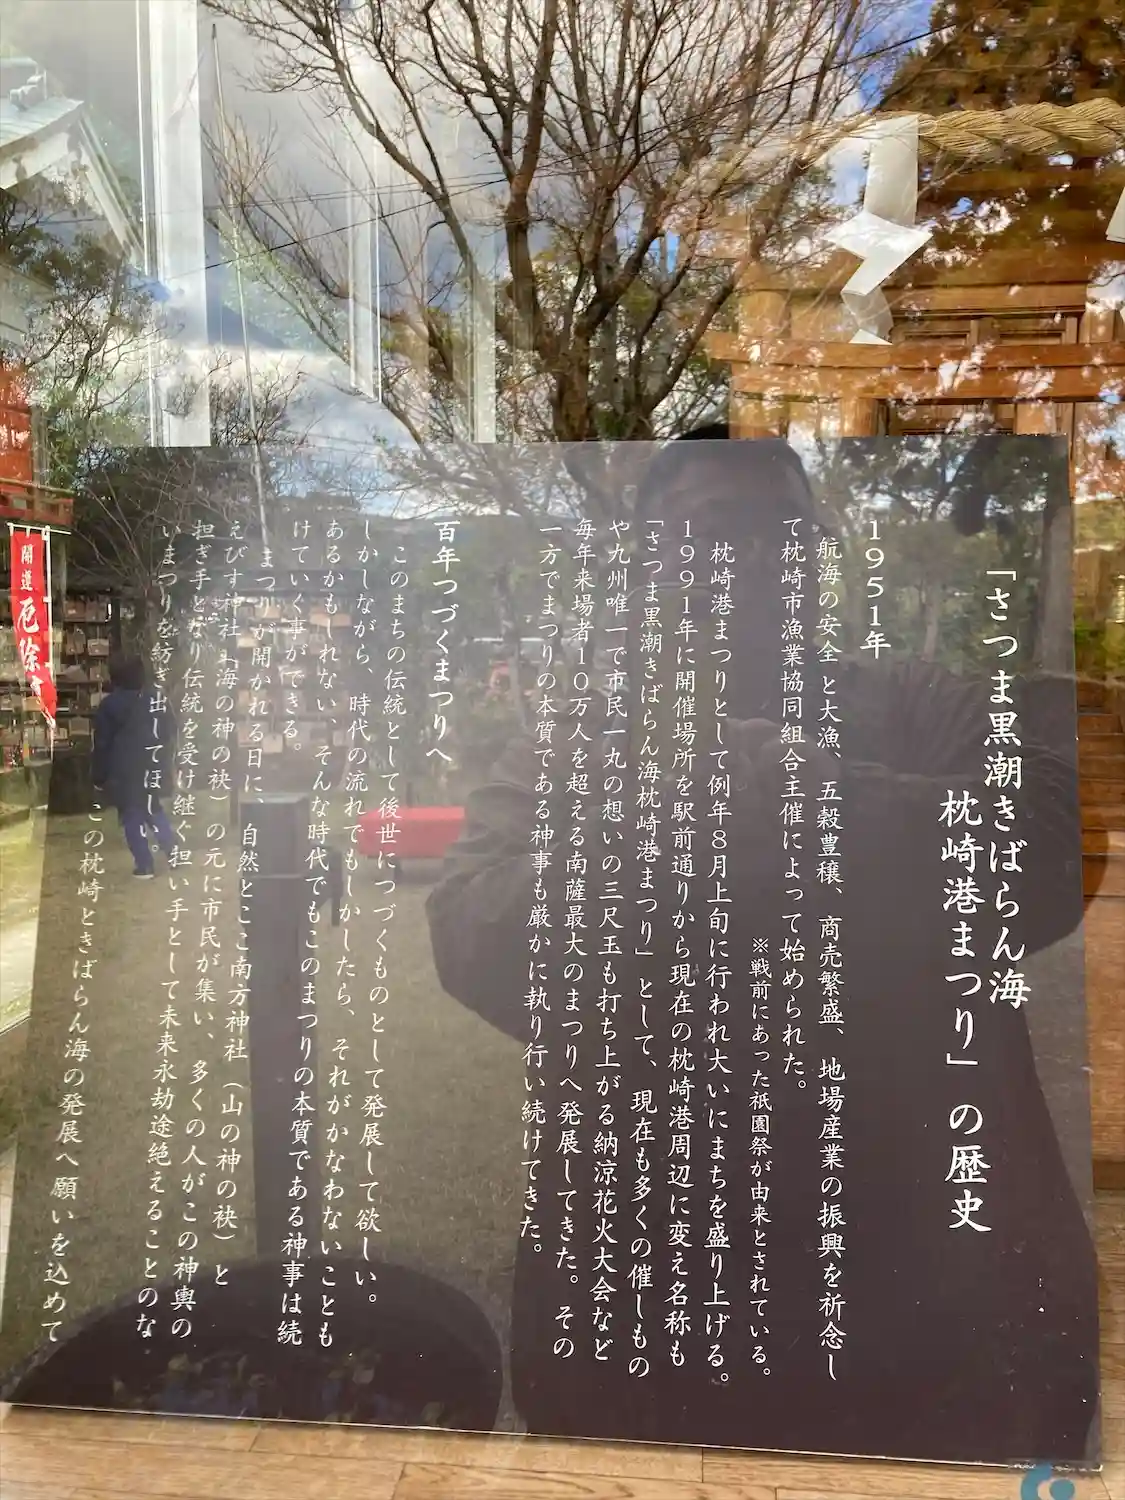 「さつま黒潮きばらん海
枕崎港まつり」の歴史
1951年
航海の安全と大漁、五穀豊穣、商売繁盛、地場産業の振興を祈念し
て枕崎市漁業協同組合主催によって始められた。
※戦前にあった祇園祭が由来とされている。
枕崎港まつりとして例年8月上旬に行われ大いにまちを盛り上げる。
1991年に開催場所を駅前通りから現在の枕崎港周辺に変え名称も
「さつま黒潮きばらん海枕崎港まつり」として、現在も多くの催しもの
や九州唯一で市民一丸の想いの三尺玉も打ち上がる納涼花火大会など
毎年来場者10万人を超える南薩最大のまつりへ発展してきた。その
一方でまつりの本質である神事も厳かに執り行い続けてきた。
百年つづくまつりへ
このまちの伝統として後世につづくものとして発展して欲しい。
しかしながら、時代の流れでもしかしたら、それがかなわないことも
あるかもしれない、そんな時代でもこのまつりの本質である神事は続
けていく事ができる。
まつりが開かれる日に、自然とここ南方神社(山の神の袂)と
えびす神社(海の神の袂)の元に市民が集い、多くの人がこの神輿の
担ぎ手となり伝統を受け継ぐ担い手として未来永劫途絶えることのな
いまつりを紡ぎ出してほしい。
この枕崎ときばらん海の発展へ願いを込めて
開運
厄除